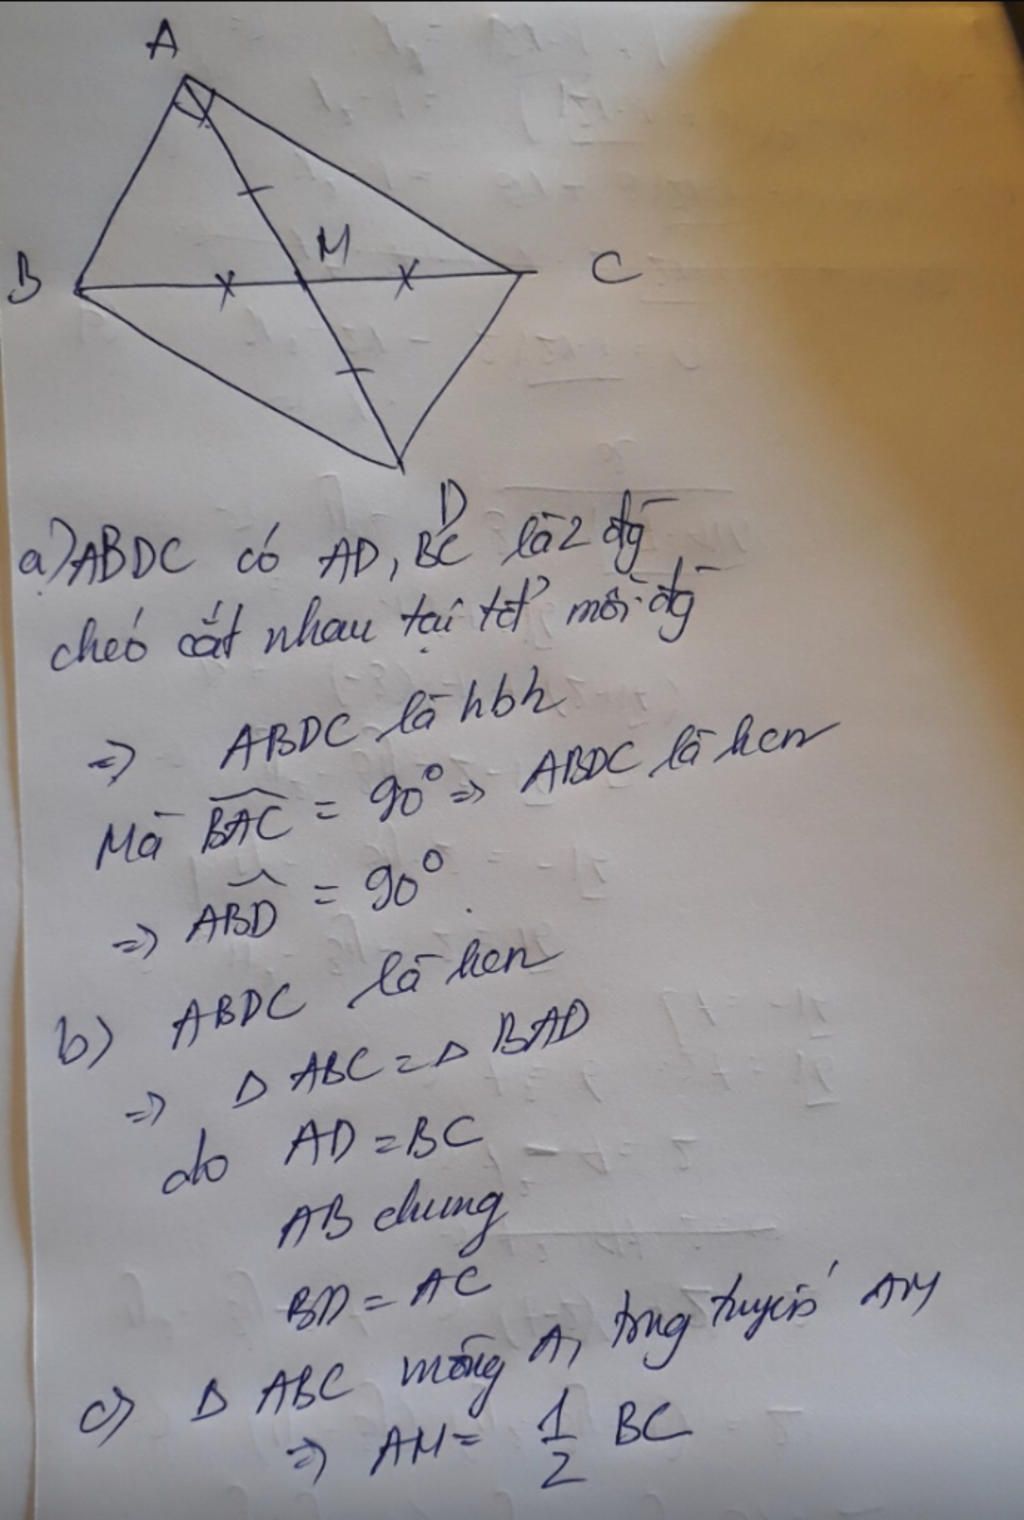 A
M
B
C
D
a) ABDC có AD, BC là 2 đg
chéo cắt nhau tại tđ mỗi đg
=> ABDC là hbh
Mà BAC = 90° => ABDC là hcn
=> ABD = 90°.
b) ABDC là hcn
=> Δ ABC = Δ BAD
do AD = BC
AB chung
BD = AC
c) Δ ABC vuông A, trung tuyến AM
=> AM = 1/2 BC